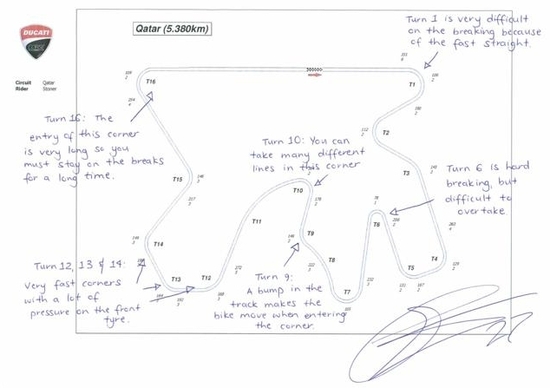 DUCATI
CORSE
Circuit Qatar
Rider Stoner
Qatar (5.380km)
Turn 1 is very difficult
on the breaking because
of the fast straight.
T16
T1
Turn 16: The
entry of this corner
is very long so you
must stay on the breaks
for a long time.
T2
Turn 10: You can
take many different
lines in this corner
T3
Turn 6 is hard
breaking, but
difficult to
overtake
T15
T10
T11
T6
T9
T14
T8
T4
T5
Turn 12, 13 & 14:
Very fast corners
with a lot of
pressure on the front
tyre.
T13
T12
T7
Turn 9:
A bump in the
track makes the
bike move when entering
the corner.